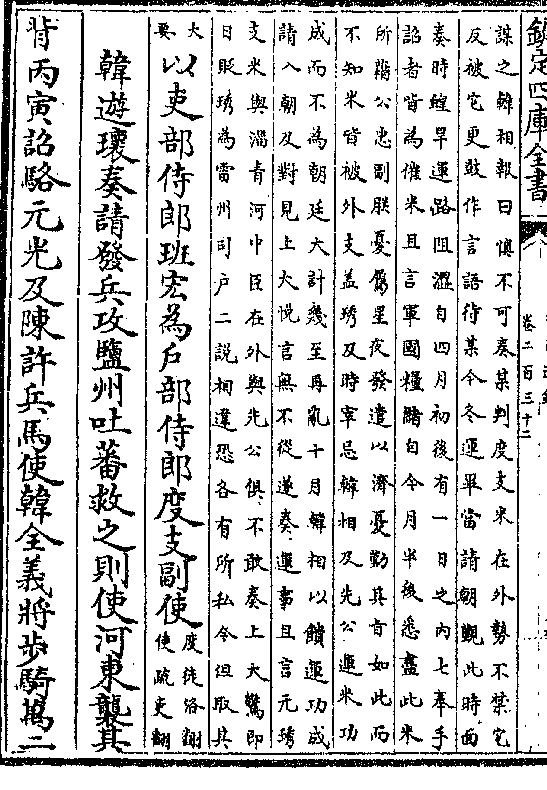 欽定四庫全書
卷二百三十二
謀之韓相報曰慎不可奏某判度支米在外勢不禁它
反被它更鼓作言語待某今冬運畢當請朝覲此時面
奏時蝗旱運路阻澀自四月初後有一日之内七奉手
詔者皆為催米且言軍國糧儲自今月半後悉盡此米
所藉公忠副朕憂星夜發遣以濟憂勤其旨如此而
不知米皆被外支蓋琇及時宰忌韓相及先公運米功
成而不為朝廷大計幾至再亂十月韓相以饋運功成
請入朝及對見上大悦言無不從遂奏運事且言元琇
支米與淄青河中臣在外與先公俱不敢奏上大驚即
日貶琇為雷州司户二説相違恐各有所私今但取其
大要以吏部侍郎班宏為户部侍郎度支副使度徒洛翻使疏吏翻
韓遊瓌奏請發兵攻鹽州吐蕃救之則使河東襲其
背丙寅詔駱元光及陳許兵馬使韓全義將步騎萬二